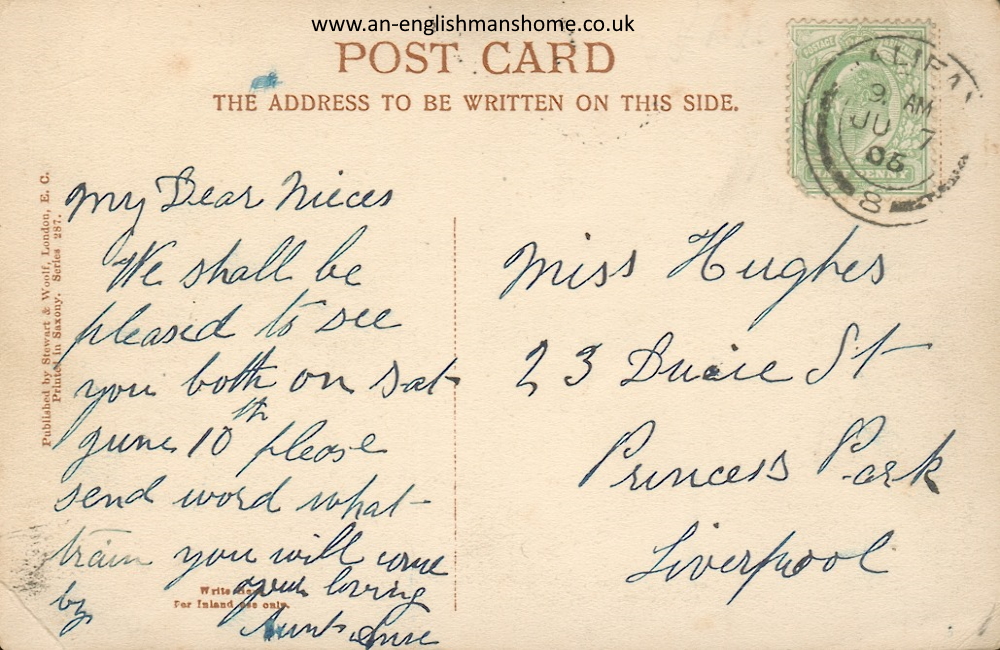 www.an-englishmanshome.co.uk
POST CARD
THE ADDRESS TO BE WRITTEN ON THIS SIDE.
POSTAGE
HALIFAX
9 AM
JU 7
05
8
PENNY
Published by Stewart & Woolf, London, E. C.
Printed in Saxony. Series 287.
My Dear Nieces
We shall be
pleased to see
you both on Sat
June 10th please
send word what
train you will come
by
Write Here
For Inland use only.
your loving
Aunt
Miss Hughes
23 St
Princess Park
Liverpool